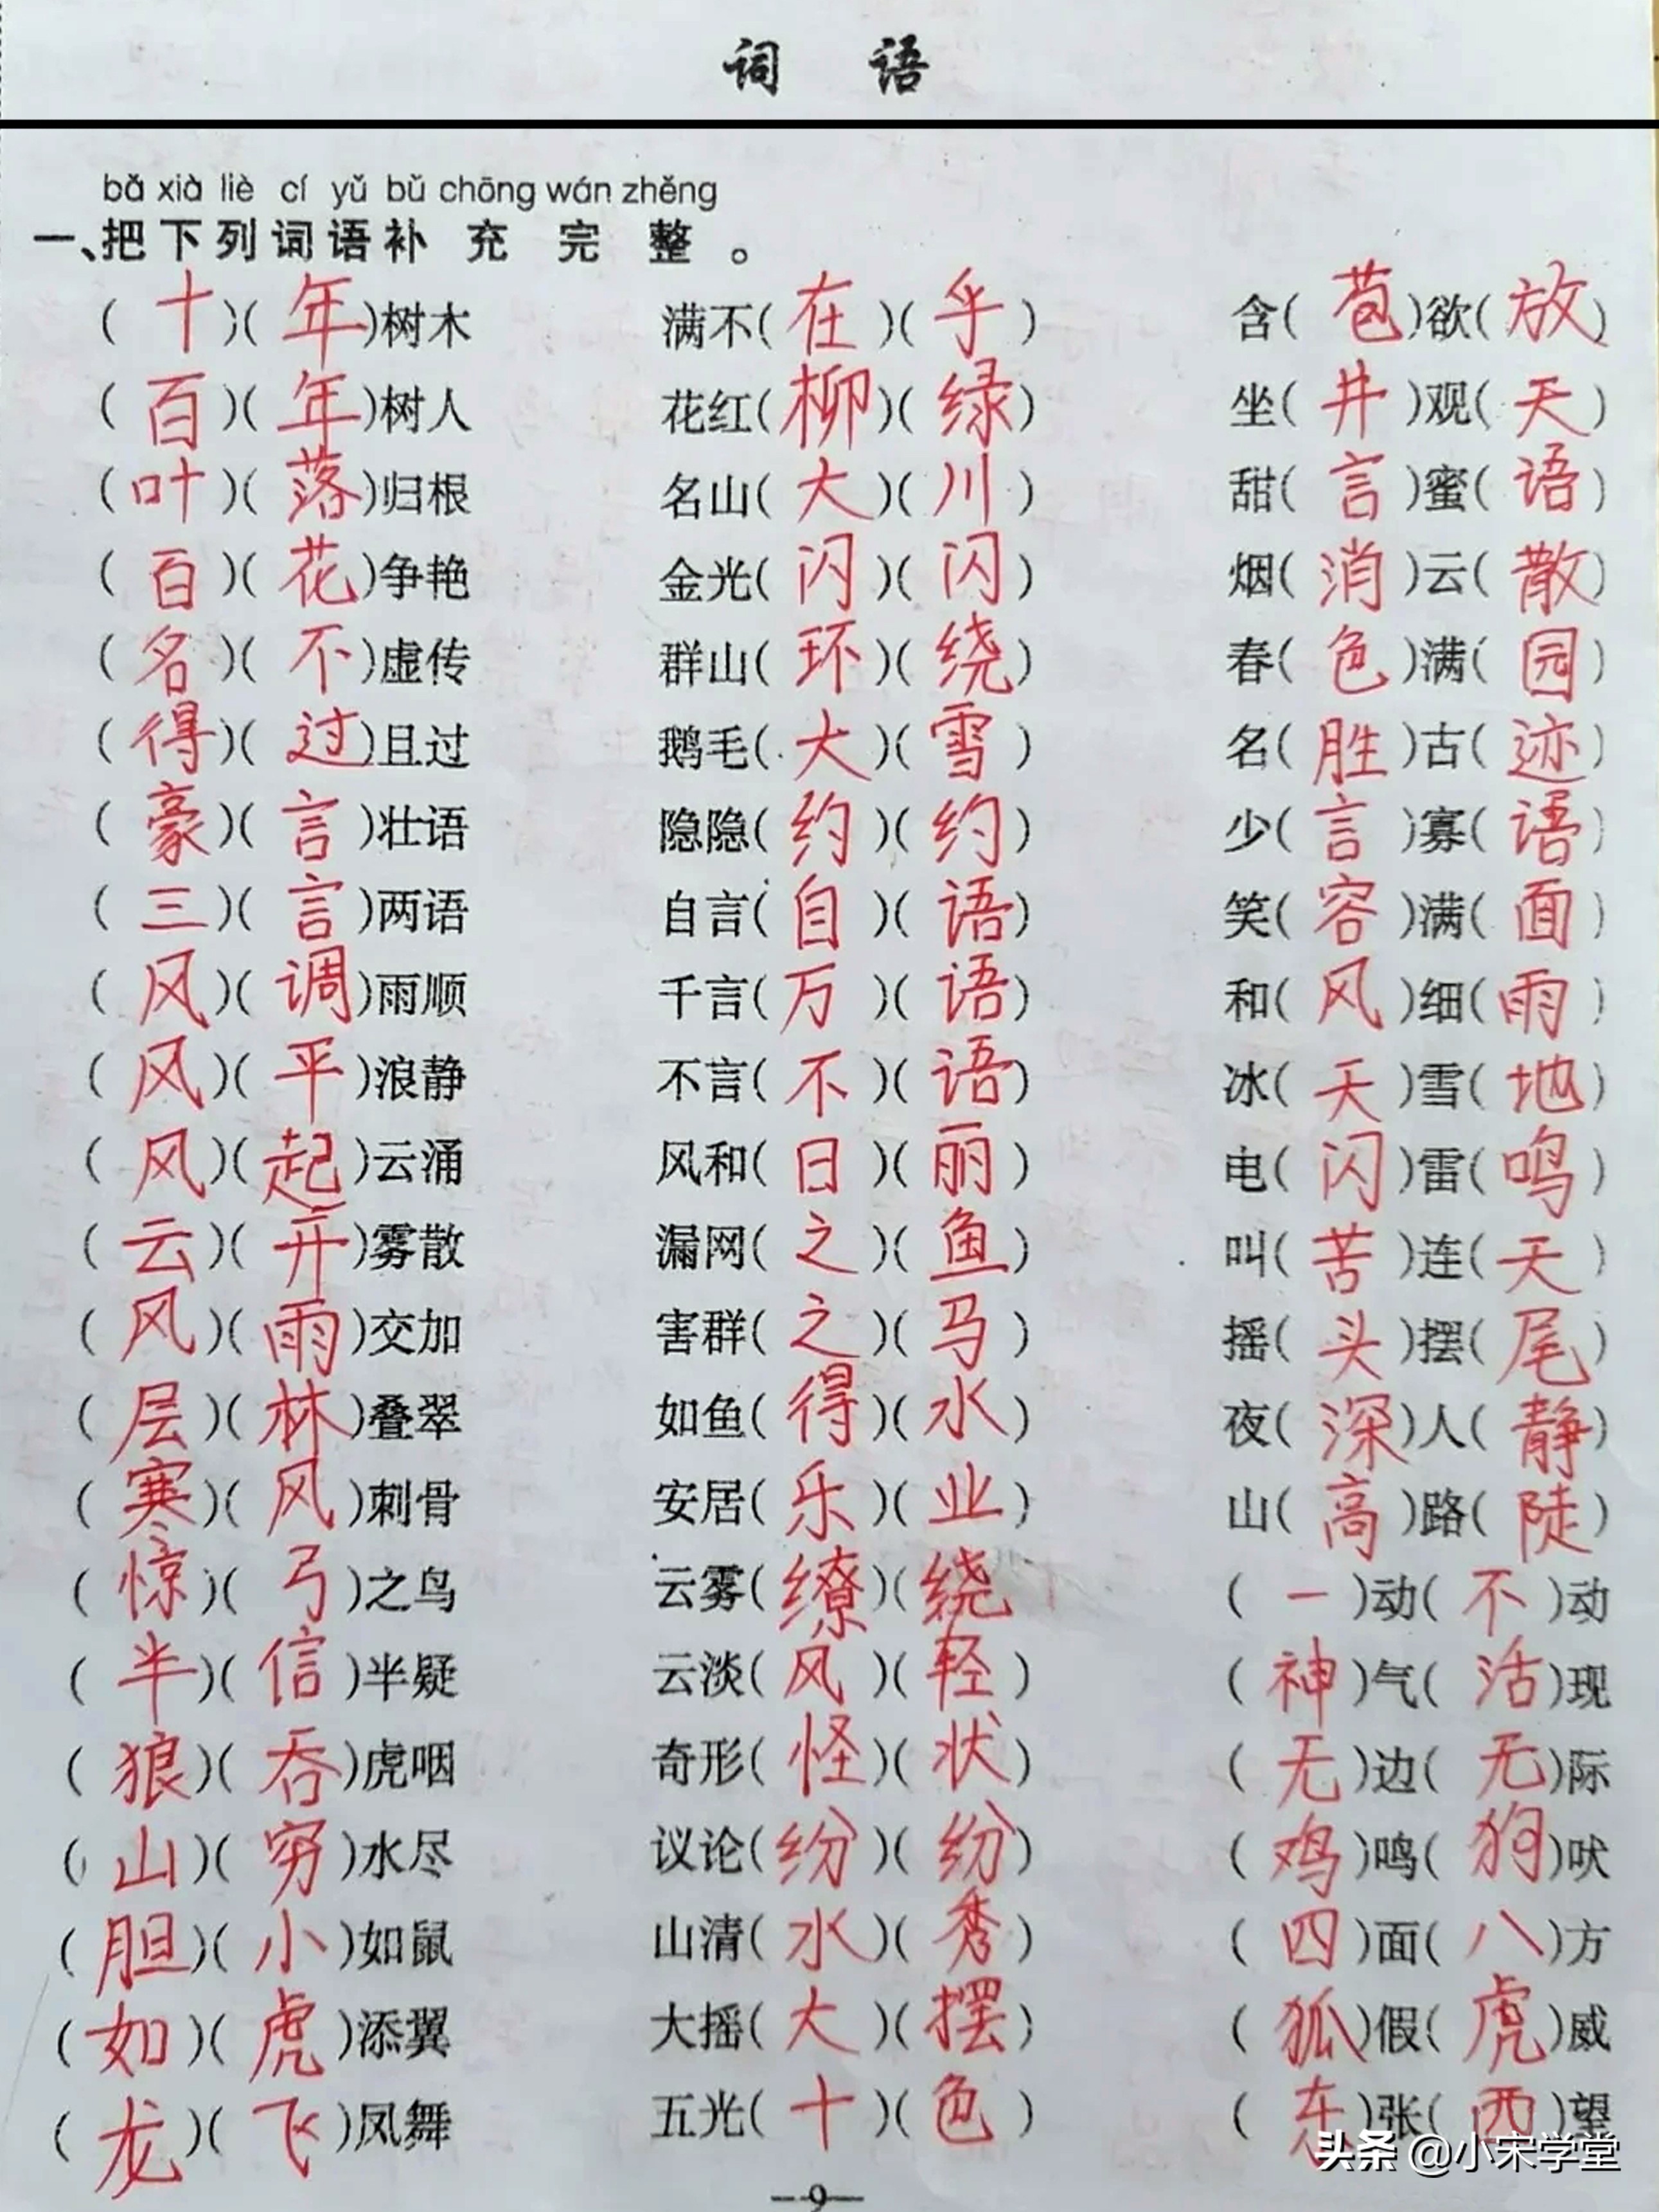 词 语
bǎ xià liè cí yǔ bǔ chōng wán zhěng
一、把下列词语补充完整。
(十)(年)树木 满不(在)(乎) 含(苞)欲(放)
(百)(年)树人 花红(柳)(绿) 坐(井)观(天)
(叶)(落)归根 名山(大)(川) 甜(言)蜜(语)
(百)(花)争艳 金光(闪)(闪) 烟(消)云(散)
(名)(不)虚传 群山(环)(绕) 春(色)满(园)
(得)(过)且过 鹅毛(大)(雪) 名(胜)古(迹)
(豪)(言)壮语 隐隐(约)(约) 少(言)寡(语)
(三)(言)两语 自言(自)(语) 笑(容)满(面)
(风)(调)雨顺 千言(万)(语) 和(风)细(雨)
(风)(平)浪静 不言(不)(语) 冰(天)雪(地)
(风)(起)云涌 风和(日)(丽) 电(闪)雷(鸣)
(云)(开)雾散 漏网(之)(鱼) 叫(苦)连(天)
(风)(雨)交加 害群(之)(马) 摇(头)摆(尾)
(层)(林)叠翠 如鱼(得)(水) 夜(深)人(静)
(寒)(风)刺骨 安居(乐)(业) 山(高)路(陡)
(惊)(弓)之鸟 云雾(缭)(绕 (一)动(不)动
(半)(信)半疑 云淡(风)(轻) (神)气(活)现
(狼)(吞)虎咽 奇形(怪)(状) (无)边(无)际
(山)(穷)水尽 议论(纷)(纷) (鸡)鸣(狗)吠
(胆)(小)如鼠 山清(水)(秀) (四)面(八)方
(如)(虎)添翼 大摇(大)(摆) (狐)假(虎)威
(龙)(飞)凤舞 五光(十)(色) (东)张(西)望
头条 @小宋学堂
—9—